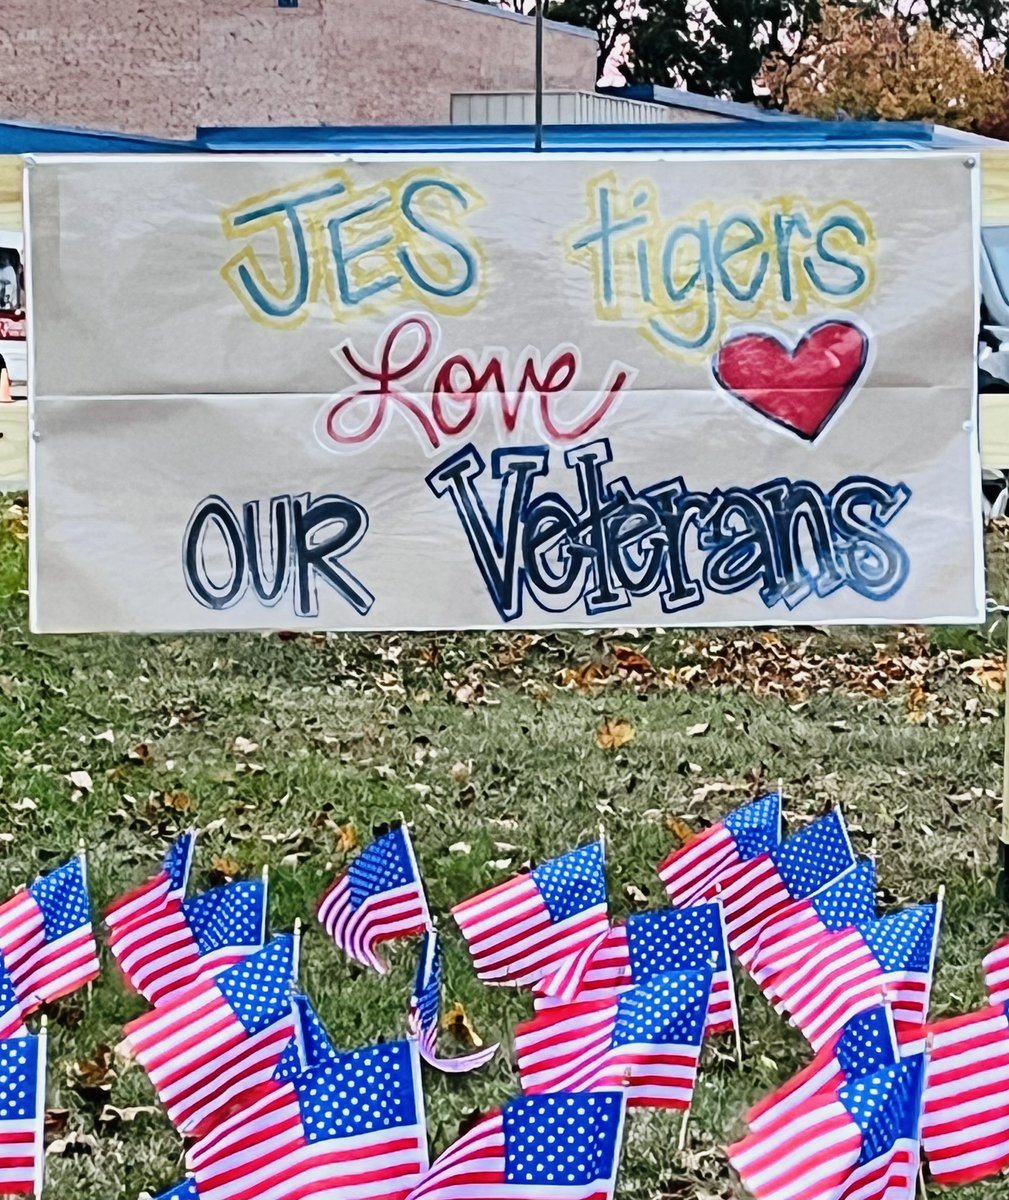 JES tigers
Love
OUR Veterans